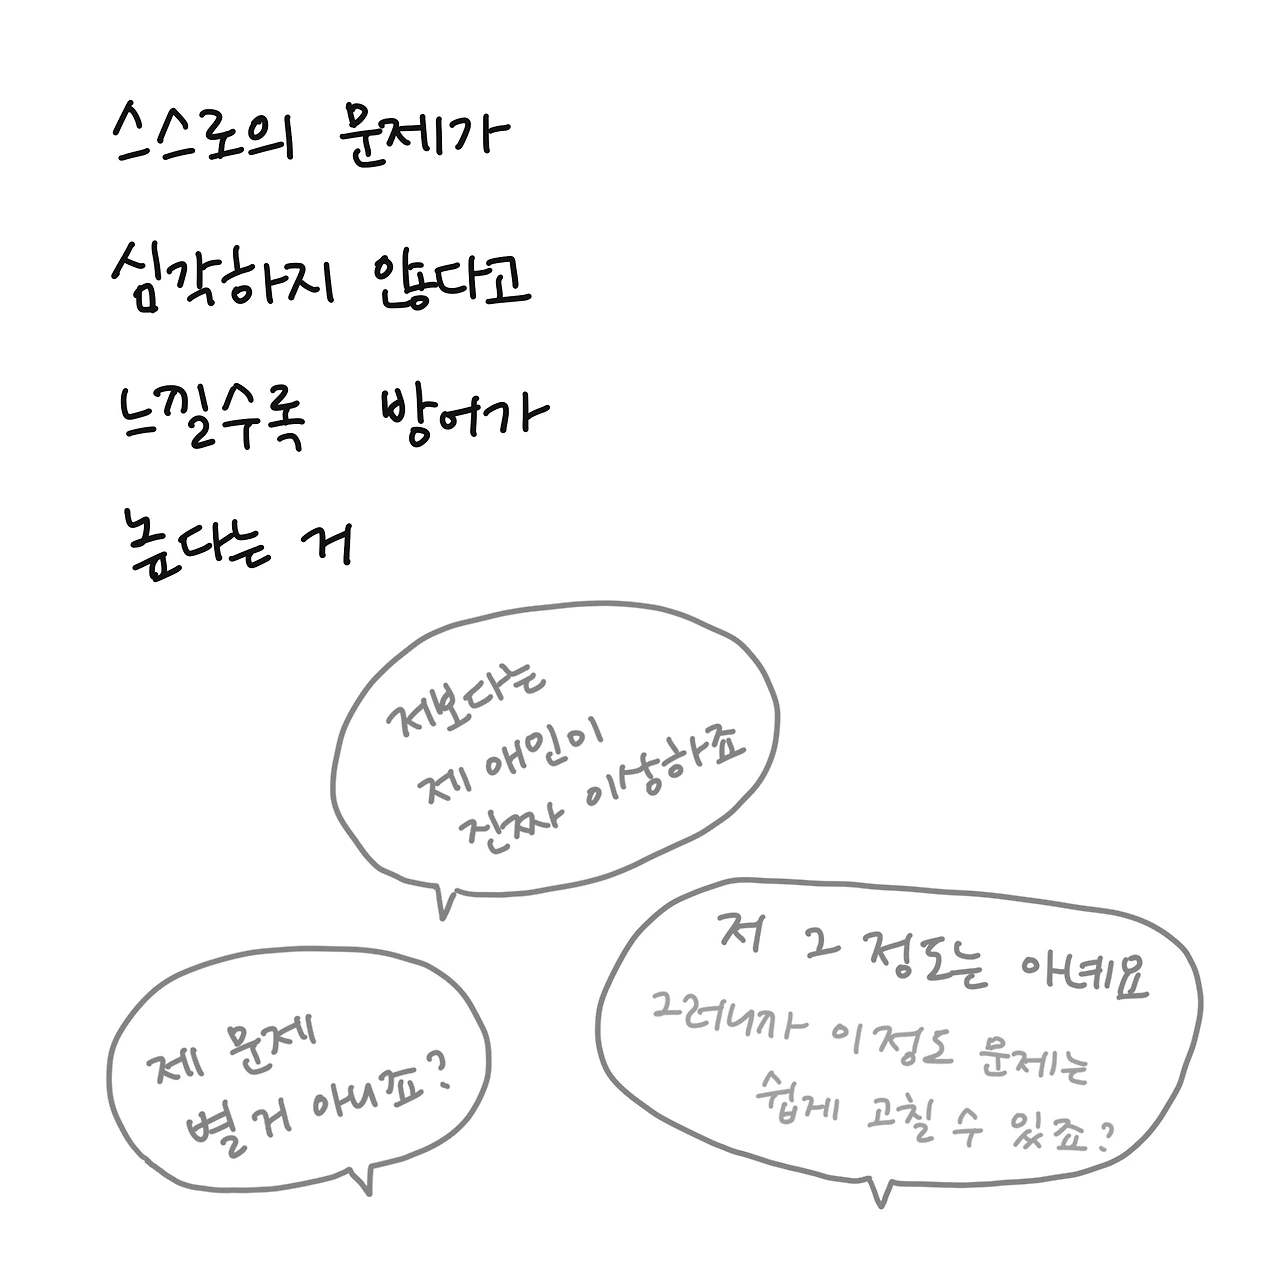 스스로의 문제가
심각하지 않다고
느낄수록 방어가
높다는 거
저보다는
제 애인이
진짜 이상하죠
제 문제
별 거 아니죠?
저 그 정도는 아녜요
그러니까 이 정도 문제는
쉽게 고칠 수 있죠?